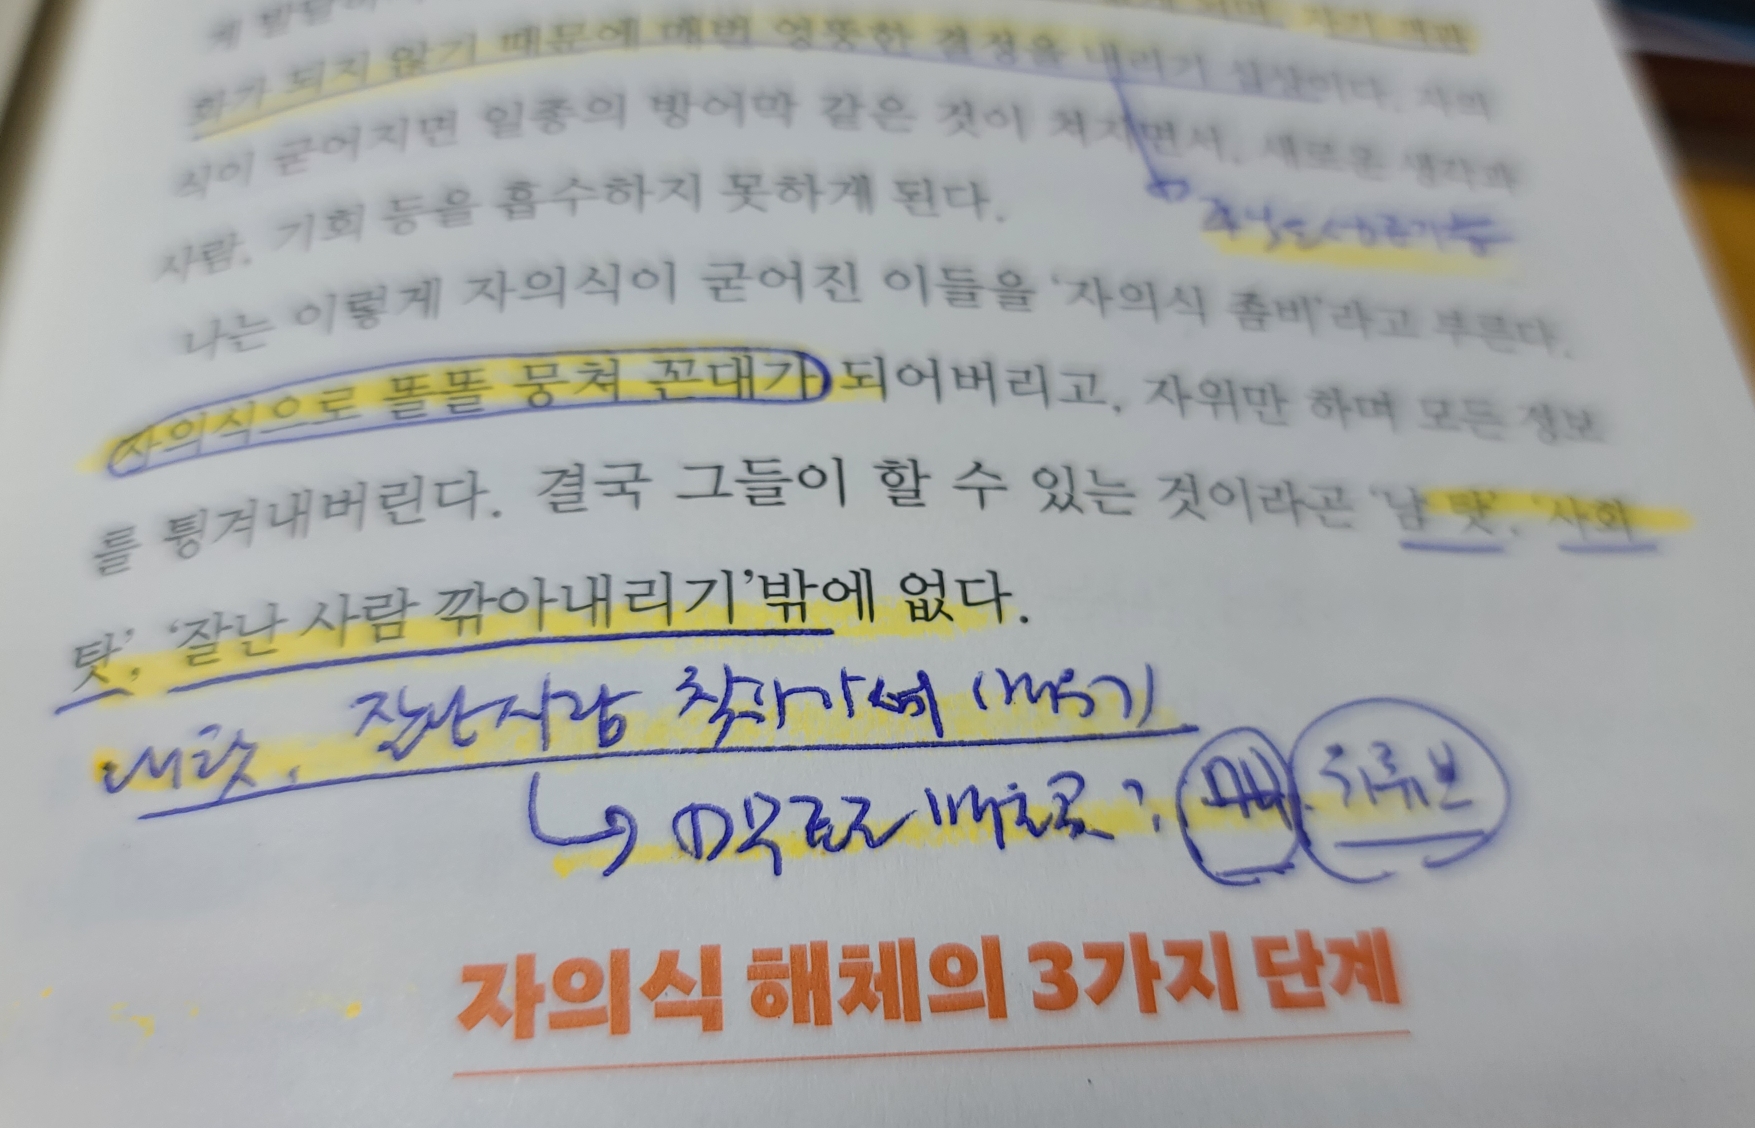 화가 되지 않기 때문에 매번 엉뚱한 결정을 내리기 십상이다. 자의
식이 굳어지면 일종의 방어막 같은 것이 쳐지면서, 새로운 생각과
사람, 기회 등을 흡수하지 못하게 된다.
나는 이렇게 자의식이 굳어진 이들을 '자의식 좀비'라고 부른다.
자의식으로 똘똘 뭉쳐 꼰대가 되어버리고, 자위만 하며 모든 정보
를 튕겨내버린다. 결국 그들이 할 수 있는 것이라곤 '남 탓', '사회
탓', '잘난 사람 깎아내리기'밖에 없다.
내탓, 잘난사람 찾아가서 배우기
무료로 배울곳? 유튜브
자의식 해체의 3가지 단계